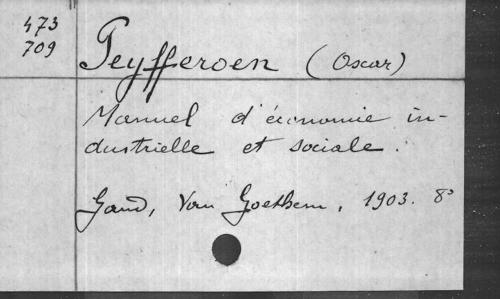 473
709
Peyfferoen (Oscar)
Manuel d'économie in-
dustrielle et sociale.
Gand, Van Goethem, 1903. 8°